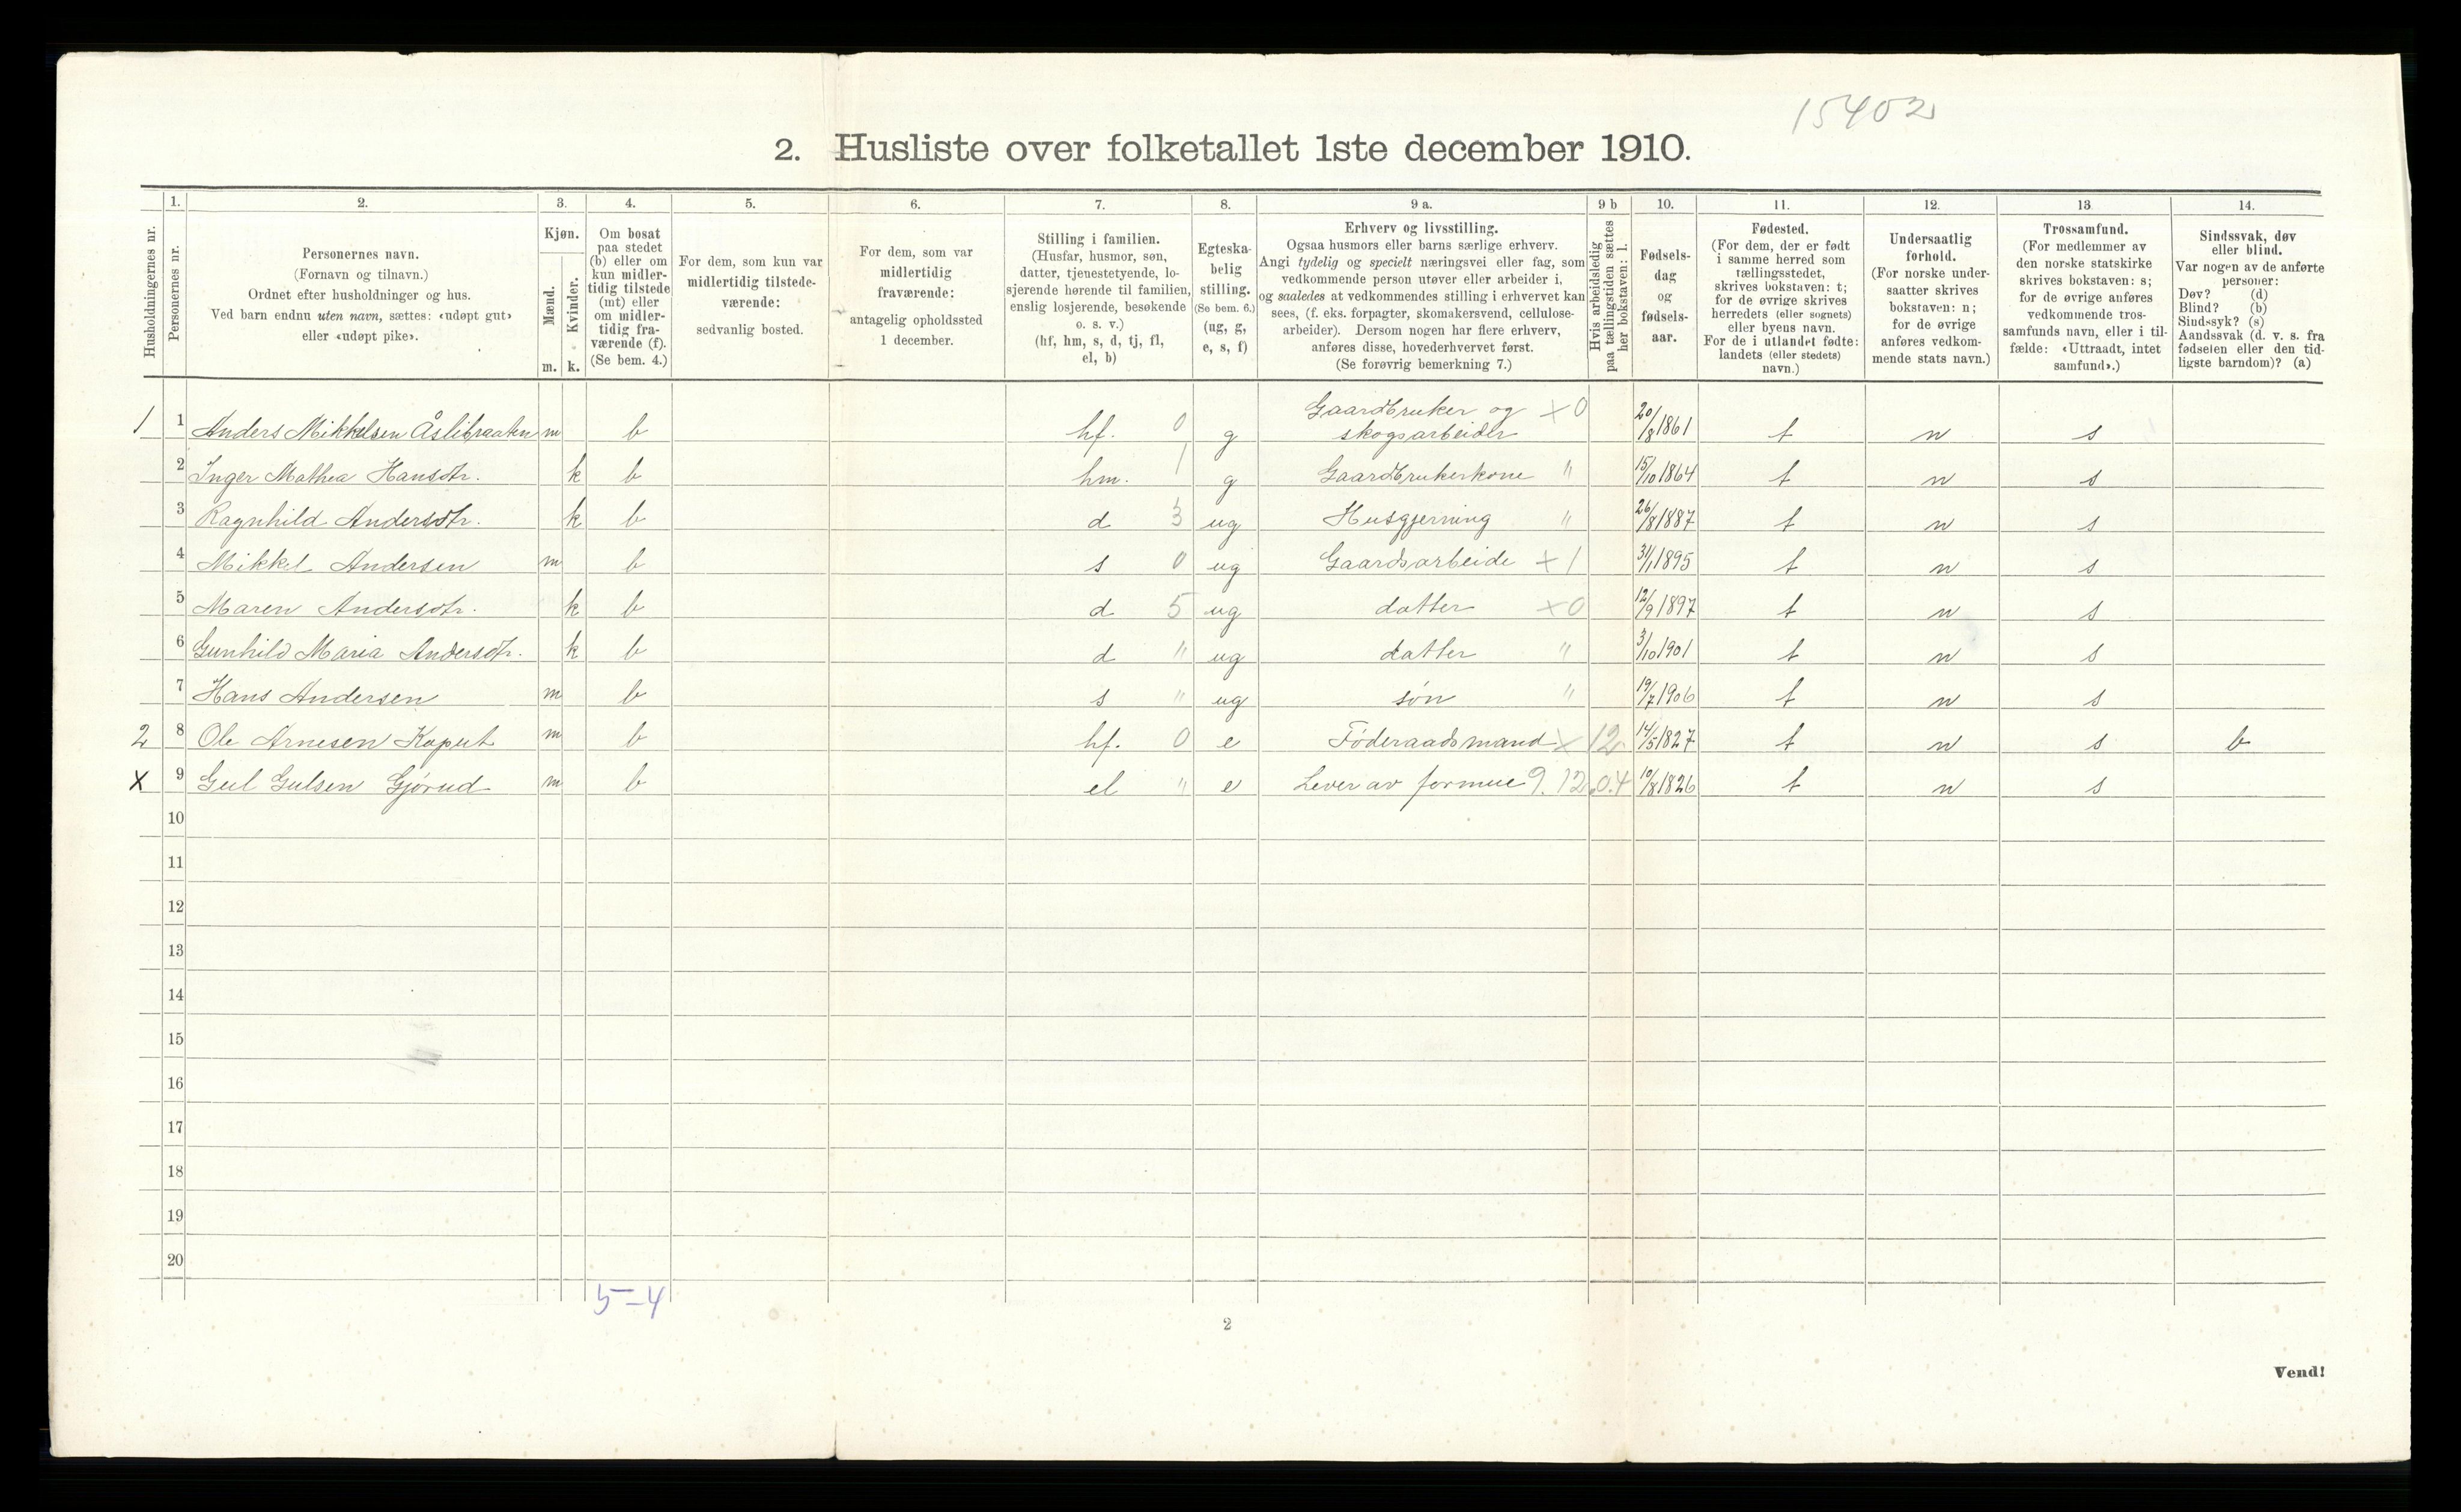 15402
2. Husliste over folketallet 1ste december 1910.
Husholdningernes nr.
1.
Personernes nr.
2.
Personernes navn.
(Fornavn og tilnavn.)
Ordnet efter husholdninger og hus.
Ved barn endnu uten navn, sættes: «udøpt gut»
eller «udøpt pike».
3.
Kjøn.
Mænd.
Kvinder.
m. k.
4.
Om bosat
paa stedet
(b) eller om
kun midler-
tidig tilstede
(mt) eller
om midler-
tidig fra-
værende (f).
(Se bem. 4.)
5.
For dem, som kun var
midlertidig tilstede-
værende:
sedvanlig bosted.
6.
For dem, som var
midlertidig
fraværende:
antagelig opholdssted
1 december.
7.
Stilling i familien.
(Husfar, husmor, søn,
datter, tjenestetyende, lo-
sjerende hørende til familien,
enslig losjerende, besøkende
o. s. v.)
(hf, hm, s, d, tj, fl,
el, b)
8.
Egteska-
belig
stilling.
(Se bem. 6.)
(ug, g,
e, s, f)
9 a.
Erhverv og livsstilling.
Ogsaa husmors eller barns særlige erhverv.
Angi tydelig og specielt næringsvei eller fag, som
vedkommende person utøver eller arbeider i,
og saaledes at vedkommendes stilling i erhvervet kan
sees, (f. eks. forpagter, skomakersvend, cellulose-
arbeider). Dersom nogen har flere erhverv,
anføres disse, hovederhvervet først.
(Se forøvrig bemerkning 7.)
9 b
Hvis arbeidsledig
paa tællingstiden sættes
her bokstaven: l.
10.
Fødsels-
dag
og
fødsels-
aar.
11.
Fødested.
(For dem, der er født
i samme herred som
tællingsstedet,
skrives bokstaven: t;
for de øvrige skrives
herredets (eller sognets)
eller byens navn.
For de i utlandet fødte:
landets (eller stedets)
navn.)
12.
Undersaatlig
forhold.
(For norske under-
saatter skrives
bokstaven: n;
for de øvrige
anføres vedkom-
mende stats navn.)
13
Trossamfund.
(For medlemmer av
den norske statskirke
skrives bokstaven: s;
for de øvrige anføres
vedkommende tros-
samfunds navn, eller i til-
fælde: «Uttraadt, intet
samfund».)
14.
Sindssvak, døv
eller blind.
Var nogen av de anførte
personer:
Døv? (d)
Blind? (b)
Sindssyk? (s)
Aandssvak (d. v. s. fra
fødselen eller den tid-
ligste barndom)? (a)
1 1 Anders Mikkelsen Åslibraaten m b hf. 0 g Gaardbruker og skogsarbeider x 0 20/8 1861 t n s
2 Inger Mathea Hansdtr. k b hm. 1 g Gaardbrukerkone " 15/10 1864 t n s
3 Ragnhild Andersdtr. k b d 3 ug Husgjerning " 26/8 1887 t n s
4 Mikkel Andersen m b s 0 ug Gaardsarbeide x 1 31/1 1895 t n s
5 Maren Andersdtr. k b d 5 ug datter x 0 12/9 1897 t n s
6 Gunhild Maria Andersdtr. k b d " ug datter " 3/10 1901 t n s
7 Hans Andersen m b s " ug søn " 19/7 1906 t n s
2 8 Ole Arnesen Kaput m b hf. 0 e Føderaadsmand x 12 14/5 1827 t n s b
x 9 Gul Gulsen Gjørud m b el " e Lever av formue 9.12.0.4 10/8 1826 t n s
10
11
12
13
14
15
16
17
18
19
20
5-4
2
Vend!